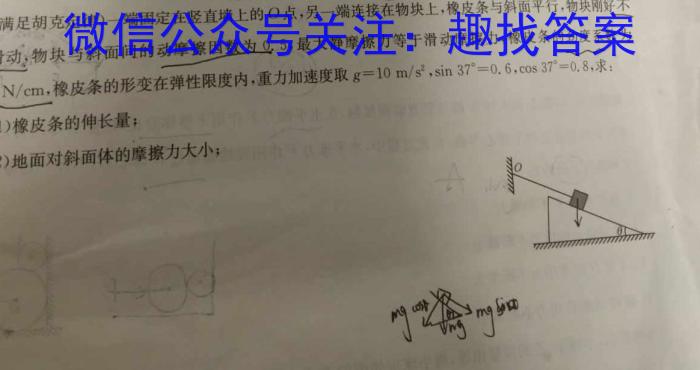 满足胡克定律,一端固定在竖直墙上的O点,另一端连接在物块上,橡皮条与斜面平行,物块刚好不
滑动,物块与斜面间的动摩擦因数为0.5,最大静摩擦力等于滑动摩擦力,橡皮条的劲度系数为
微信公众号关注:趣找答案
N/cm,橡皮条的形变在弹性限度内,重力加速度取g=10 m/s²,sin 37°=0.6,cos 37°=0.8,求:
)橡皮条的伸长量;
)地面对斜面体的摩擦力大小;
O
θ
mg
mg
mg